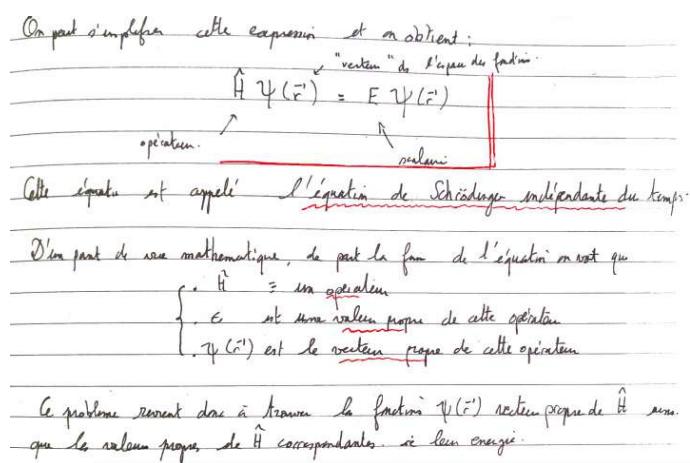 On peut simplifier cette expression et on obtient :
"vecteur" de l'espace des fonctions.
Ĥ Ψ(r⃗) = E Ψ(r⃗)
opérateur.
scalaire
Cette équatio est appelé l'équation de Schrödinger indépendante du temps.
D'un point de vue mathématique, de part la forme de l'équation on voit que
. Ĥ ≡ un opérateur
. ε est une valeur propre de cette opérateur
. Ψ(r⃗) est le vecteur propre de cette opérateur
Ce problème revient donc à trouver la fonction Ψ(r⃗) vecteur propre de Ĥ ainsi
que les valeurs propres de Ĥ correspondantes. ie leur énergie.